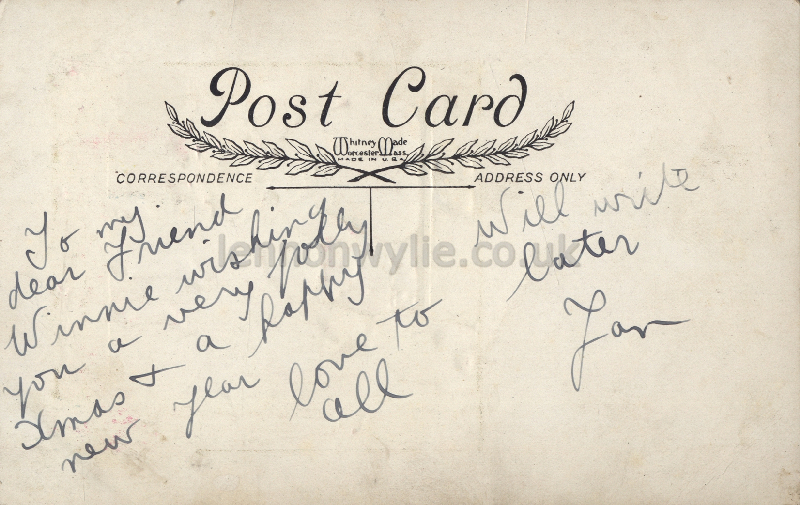 Post Card
Whitney Made
Worcester Mass.
MADE IN U.S.A.
CORRESPONDENCE
ADDRESS ONLY
To my
dear Friend
Winnie wishing
you a very jolly
Xmas & a happy
new year love to
all
Will write
later
lennonwylie.co.uk